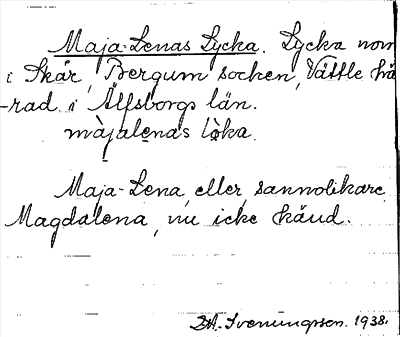 Maja-Lenas Lycka. Lycka nom
i Skår, Bergum socken, Vättle hä
-rad i Älfsborgs län.
màjalenas lòka.
Maja-Lena, eller, sannolikare
Magdalena, nu icke känd.
Sveningsson. 1938.